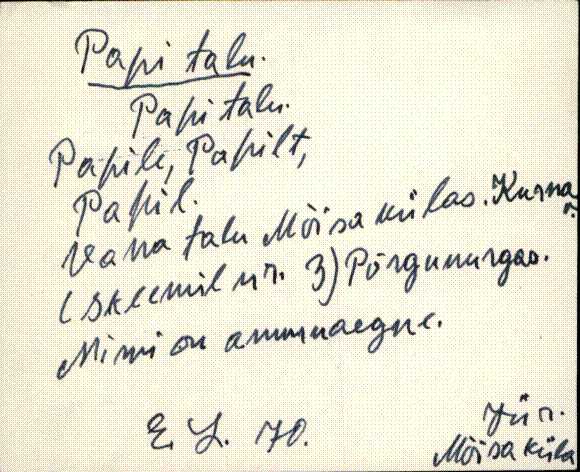 Papi talu.
Papi talu.
Papile, Papilt,
Papil.
Vana talu Mõisa külas. Kurna
(skeemil nr. 3) Põrgunurgas.
Nimi on ammuaegne.
E. L. 70.
Jür.
Mõisaküla